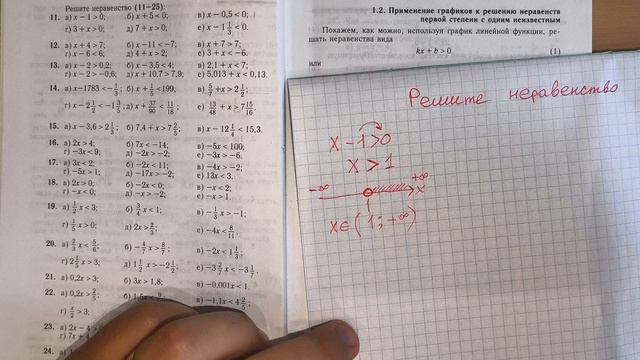 Решите неравенство (11–25):
11. а) x − 1 > 0; б) x + 5 < 0; в) x − 0,5 < 0;
г) 3 + x > 0; д) 7 + x > 0; е) x − 1 1/3 < 0.
12. а) x + 4 > 7; б) x − 11 < −7; в) x + 7 > 7;
г) x − 6 < 6; д) 4 + x > 2; е) 3 + x < −6.
13. а) x − 2 > 0,2; б) x − 3,5 < 4; в) 2,1 + x < 7;
г) x − 2 > −0,6; д) x + 10,7 > 7,9; е) 5,013 + x < 0,13.
14. а) x − 1783 < −1/3; б) x + 1/5 < 199; в) 5/7 + x > 2 1/2;
г) x − 2 1/2 < −1 3/5; д) x + 37/90 < 11/18; е) 13/48 + x > 7 15/16.
15. а) x − 3,6 > 2 1/3; б) 7,4 + x > 7 2/5; в) x − 12 1/4 < 15,3.
16. а) 2x > 4; б) 7x < −14; в) −5x < 100;
г) −3x < 9; д) −2x > −2; е) −3x > −6.
17. а) 3x < 2; б) −2x < 11; в) −4x > −2;
г) −5x > 1; д) −17x > −2; е) 13x < 3.
18. а) 2x > 0; б) −2x < 0; в) −x < 2;
г) −x < 0; д) −x > −2; е) −x > 1.
19. а) 1/2 x < 3; б) 3/4 x < 1; в) −1/3 x > −1;
г) 1/5 x > 0; д) 2x > 2/3; е) −4x < 8/11.
20. а) 2/3 x < 5/6; б) −4/7 x > 8/7; в) −2x < 1 1/3;
г) 2 1/5 x > 3; д) 1 1/2 x > −2 1/2; е) −3 2/7 x < −3 1/7.
21. а) 0,2x > 3; б) 3x > 1,8; в) −0,001x < 1.
22. а) 0,2x > 2/5; в) −1,1x < 4 2/5;
г) x/2 > 3;
23. а) 2x − 4
г) 7x +
24.
1.2. Применение графиков к решению неравенств
первой степени с одним неизвестным
Покажем, как можно, используя график линейной функции, ре-
шать неравенства вида
kx + b > 0 (1)
или
Решите неравенство
x − 1 > 0
x > 1
−∞ +∞
1 x
x ∈ (1; +∞)